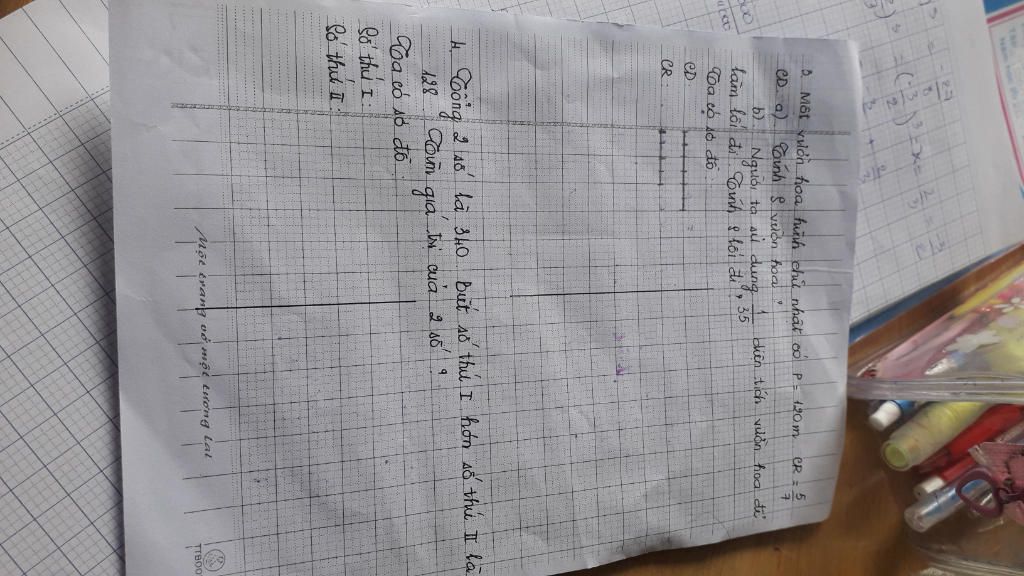 3. Một vườn hoa hình chữ nhật có P = 120m CR = 5/7
CD. a) Tính S vườn hoa?
b) Người ta sử dụng 1/35 diện tích vườn hoa để
làm lối đi. Tính S lối đi?
Ta có sơ đồ:
CD:
CR:
4. Tổng 2 số là 340 biết số thứ I hơn số thứ II là
128. Tìm giá trị của 2 số?
Ta có sơ đồ:
Số thứ I:
Số thứ II:
Một trang vở một tương lai